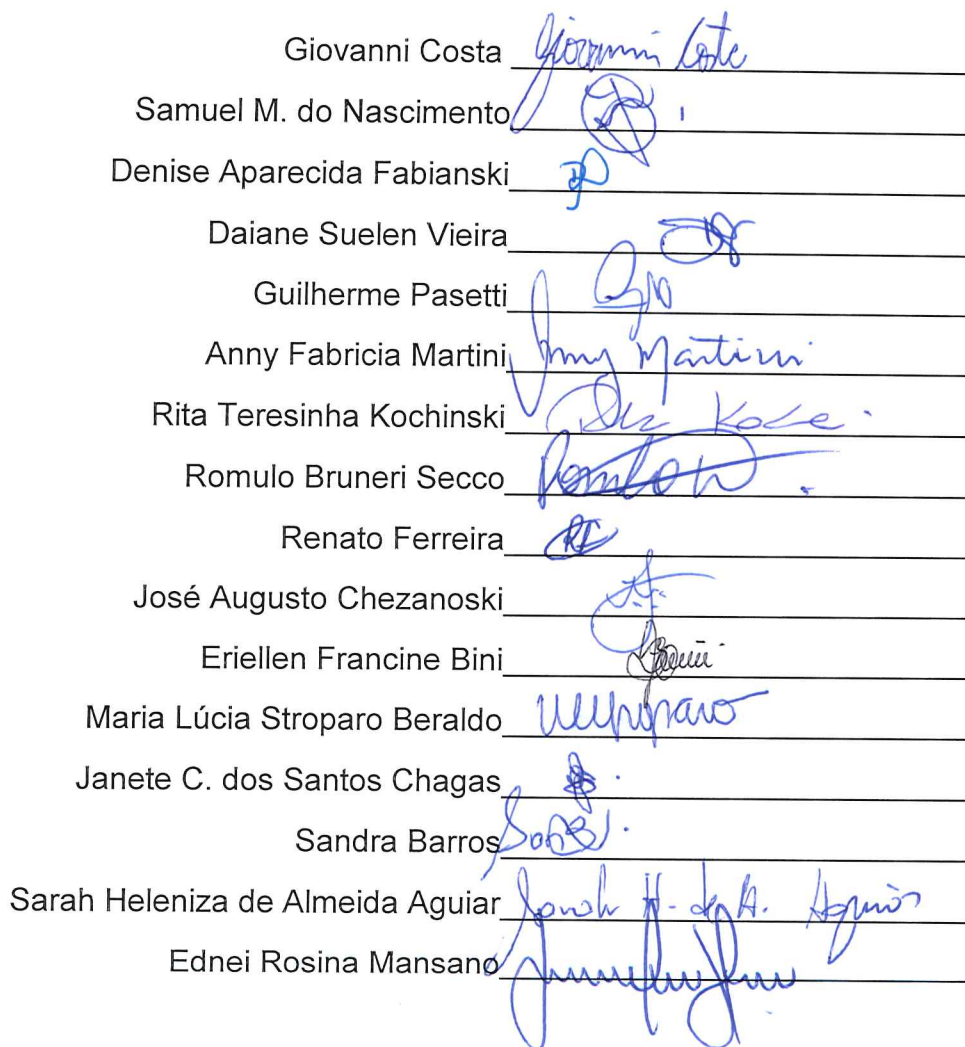 Giovanni Costa Giovanni Costa
Samuel M. do Nascimento
Denise Aparecida Fabianski
Daiane Suelen Vieira
Guilherme Pasetti
Anny Fabricia Martini Anny Martini
Rita Teresinha Kochinski
Romulo Bruneri Secco
Renato Ferreira RF
José Augusto Chezanoski
Eriellen Francine Bini
Maria Lúcia Stroparo Beraldo
Janete C. dos Santos Chagas
Sandra Barros
Sarah Heleniza de Almeida Aguiar Sarah H. de A. Aguiar
Ednei Rosina Mansano